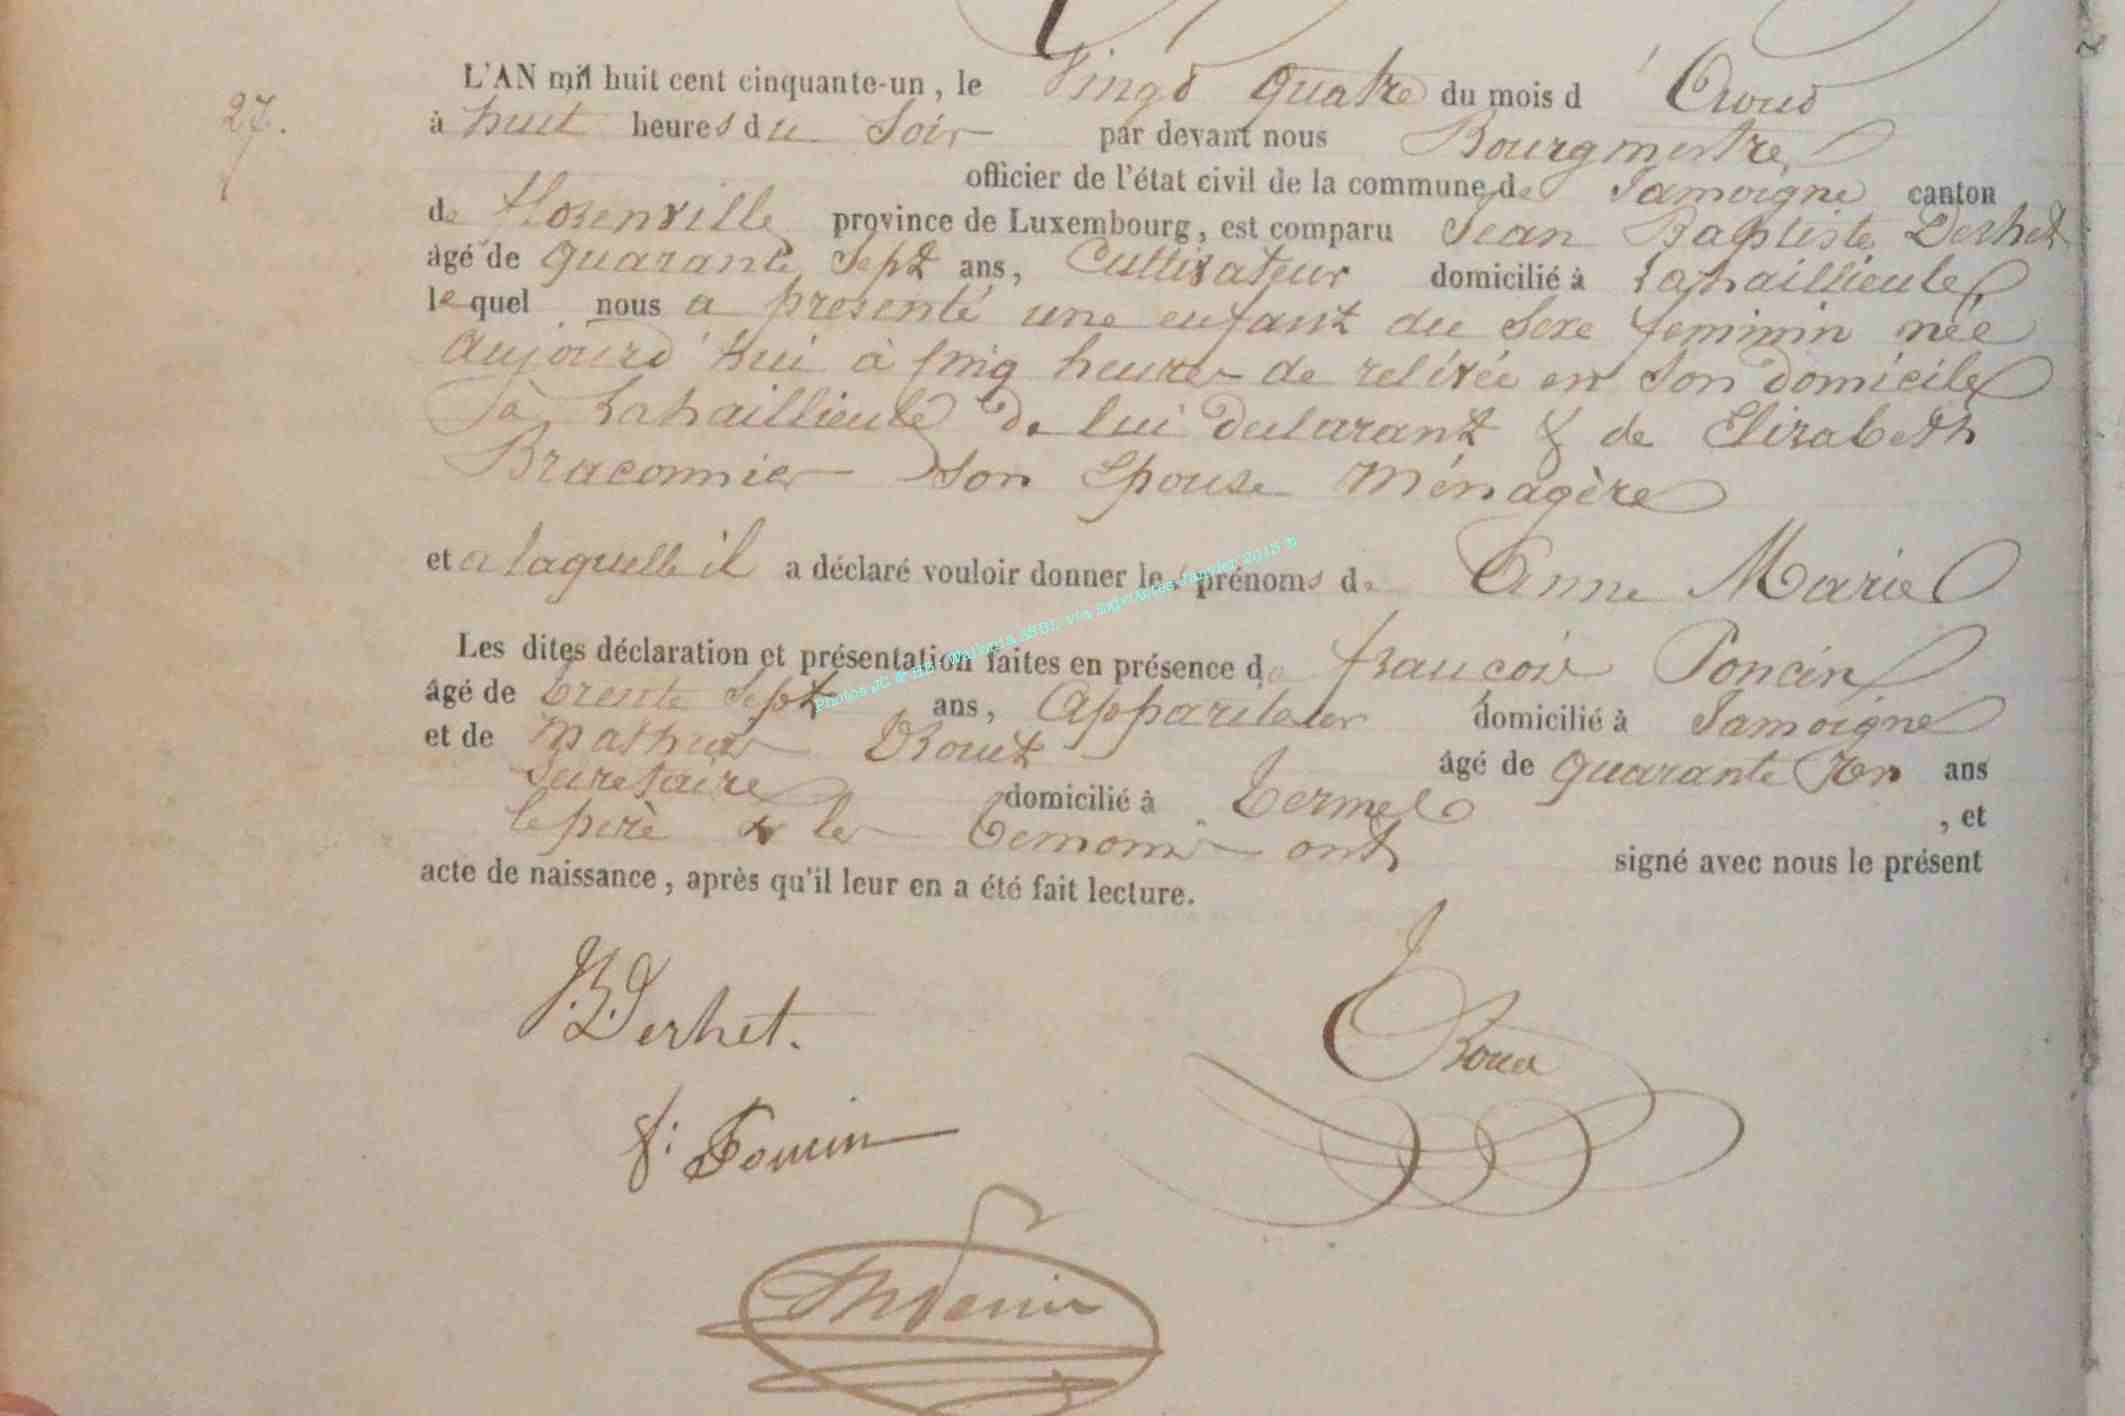 27.
L'AN mil huit cent cinquante-un, le Vingt quatre du mois d'Aout
à huit heures du Soir par devant nous Bourgmestre
officier de l'état civil de la commune de Jamoigne canton
de Florenville province de Luxembourg, est comparu Jean Baptiste Derhet
âgé de quarante Sept ans, Cultivateur domicilié à Lahaillieule
lequel nous a presenté une enfant du Sexe feminin née
aujourd'hui à cinq heures de relévée en Son domicile
à Lahaillieule de lui declarant & de Elisabeth
Braconnier Son Epouse Ménagère
et a laquelle il a déclaré vouloir donner les prénoms de Anne Marie
Les dites déclaration et présentation faites en présence de francois Poncin
âgé de trente Sept ans, Appariteur domicilié à Jamoigne
et de Mathieu Drouet âgé de quarante un ans
Secretaire domicilié à Termes , et
le perè & les temoins ont signé avec nous le présent
acte de naissance, après qu'il leur en a été fait lecture.
Photos JG & HB - Wallonia ASBL via Janvier 2015 ©
JB Derhet.
f: Poncin